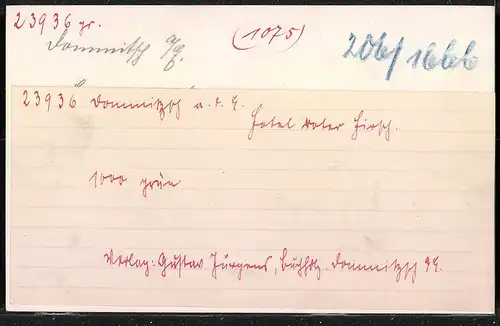 23936 gr.
(1075)
Dommitzsch a/E.
206/1666
23936 Dommitzsch a. d. E.
Hotel Roter Hirsch.
1000 grün
Verlag: Gustav Jürgens, Buchhdg. Dommitzsch